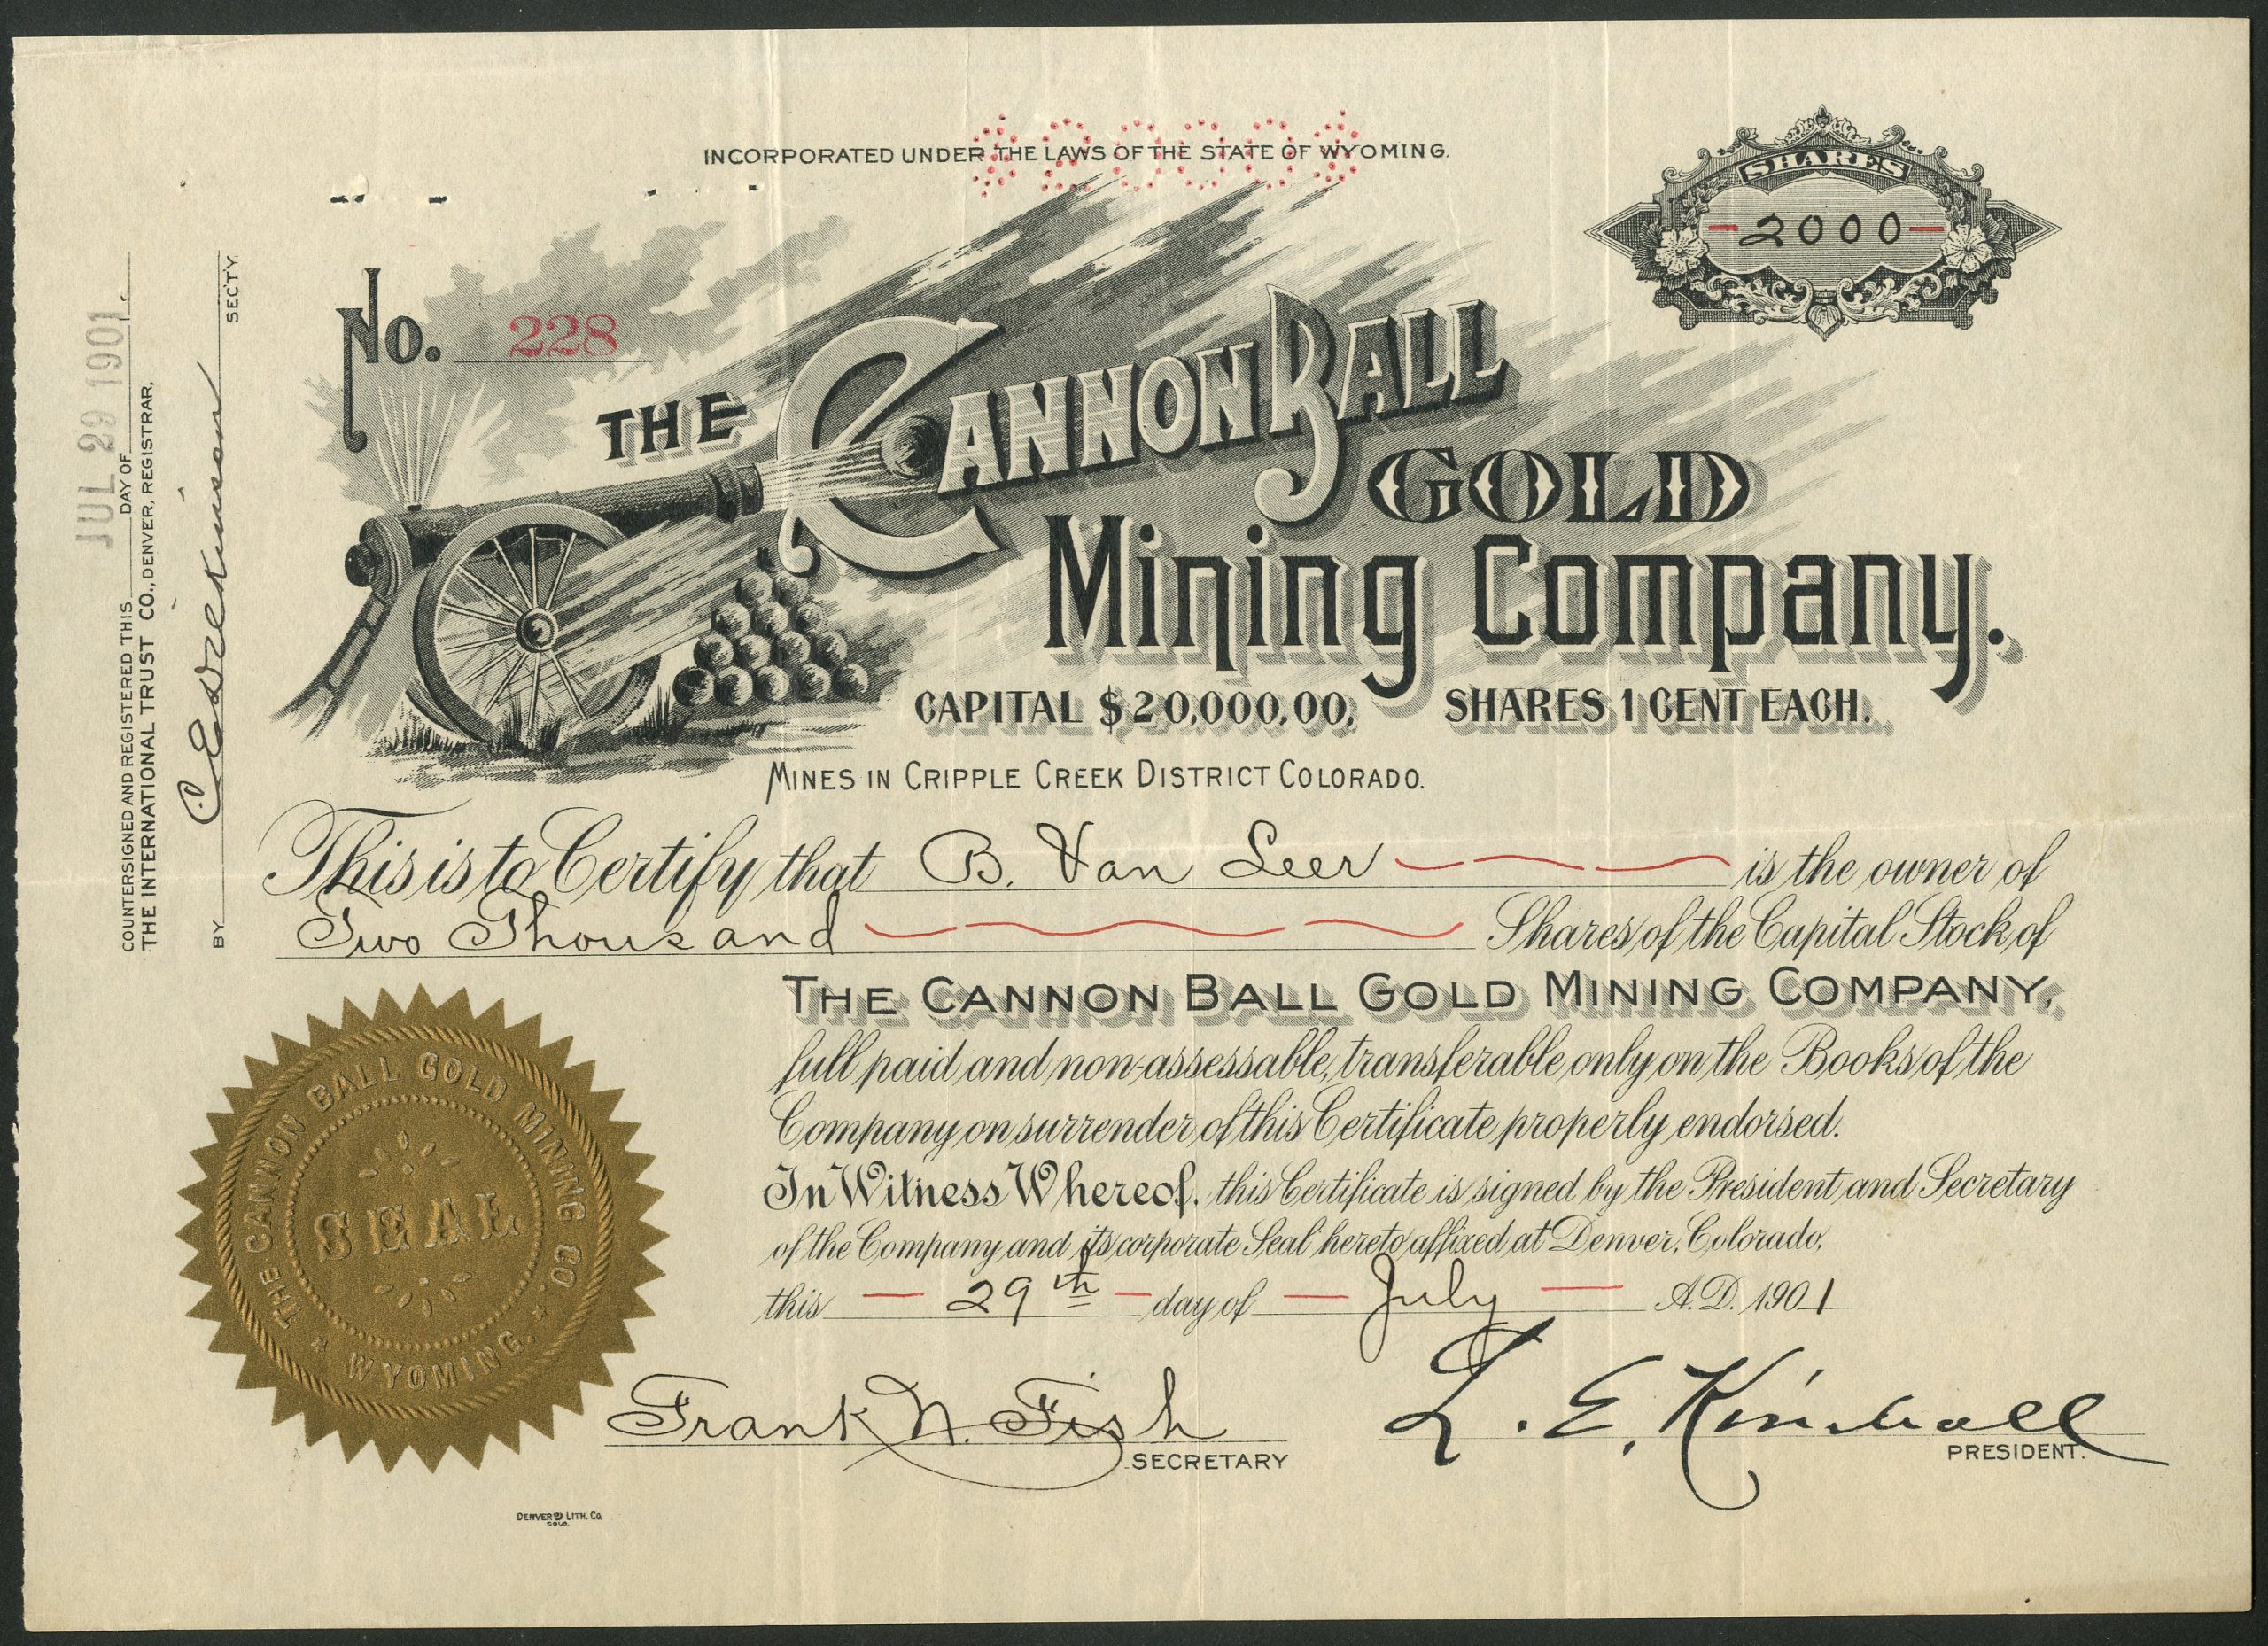 INCORPORATED UNDER THE LAWS OF THE STATE OF WYOMING.
$2000$
SHARES
-2000-
No. 228
THE CANNON BALL
GOLD
Mining Company.
CAPITAL $20,000.00, SHARES 1 CENT EACH.
MINES IN CRIPPLE CREEK DISTRICT COLORADO.
This is to Certify that B. Van Leer is the owner of
Two Thousand Shares of the Capital Stock of
THE CANNON BALL GOLD MINING COMPANY,
full paid and non-assessable, transferable only on the Books of the
Company on surrender of this Certificate properly endorsed.
In Witness Whereof, this Certificate is signed by the President and Secretary
of the Company and its corporate Seal hereto affixed at Denver, Colorado,
this - 29th - day of - July - A.D. 1901
Frank N. Fish
SECRETARY
L. E. Kimball
PRESIDENT.
THE CANNON BALL GOLD MINING CO.
SEAL
WYOMING.
DENVER LITH. CO.
COLO.
COUNTERSIGNED AND REGISTERED THIS DAY OF
JUL 29 1901
THE INTERNATIONAL TRUST CO., DENVER, REGISTRAR.
BY SECT'Y.